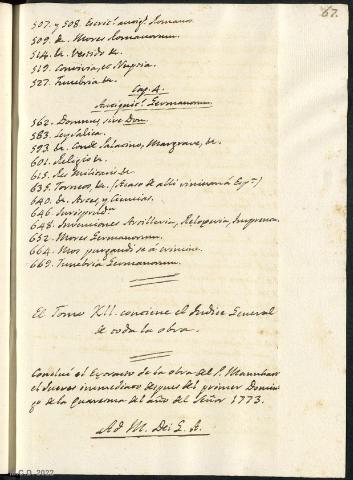 67.
507. y 508. Escrit.ˢ antig.ˢ Romanos
509. &. Mores Romanorum.
514. &. Vestido &.
519. Convivia, et Nupcia.
527. Funebria &.
Cap. 4.
Antiquit.ˢ Germanorum.
562. Dominus, sive Don.
583. Ley Salica.
593. &. Conde Palatino, Margrave, &.
601. Religio &.
615. Res Militaris &.
635. Torneos, &. (Acaso de alli vinieron á Esp.ª)
640. &. Artes, y Ciencias.
646. Jurisprud.ª
648. Invenciones Artilleria, Reloxeria, Imprenta.
652. Mores Germanorum.
664. Mos purgandi se á crimine.
669. Funebria Germanorum.
El Tomo XII. contiene el Indice General
de toda la obra.
Concluí el Extracto de la obra del P.
el Jueves inmediato despues del primer Domin-
go de la Quaresma del año del Señor 1773.
Ad M. Dei G. A.
2022